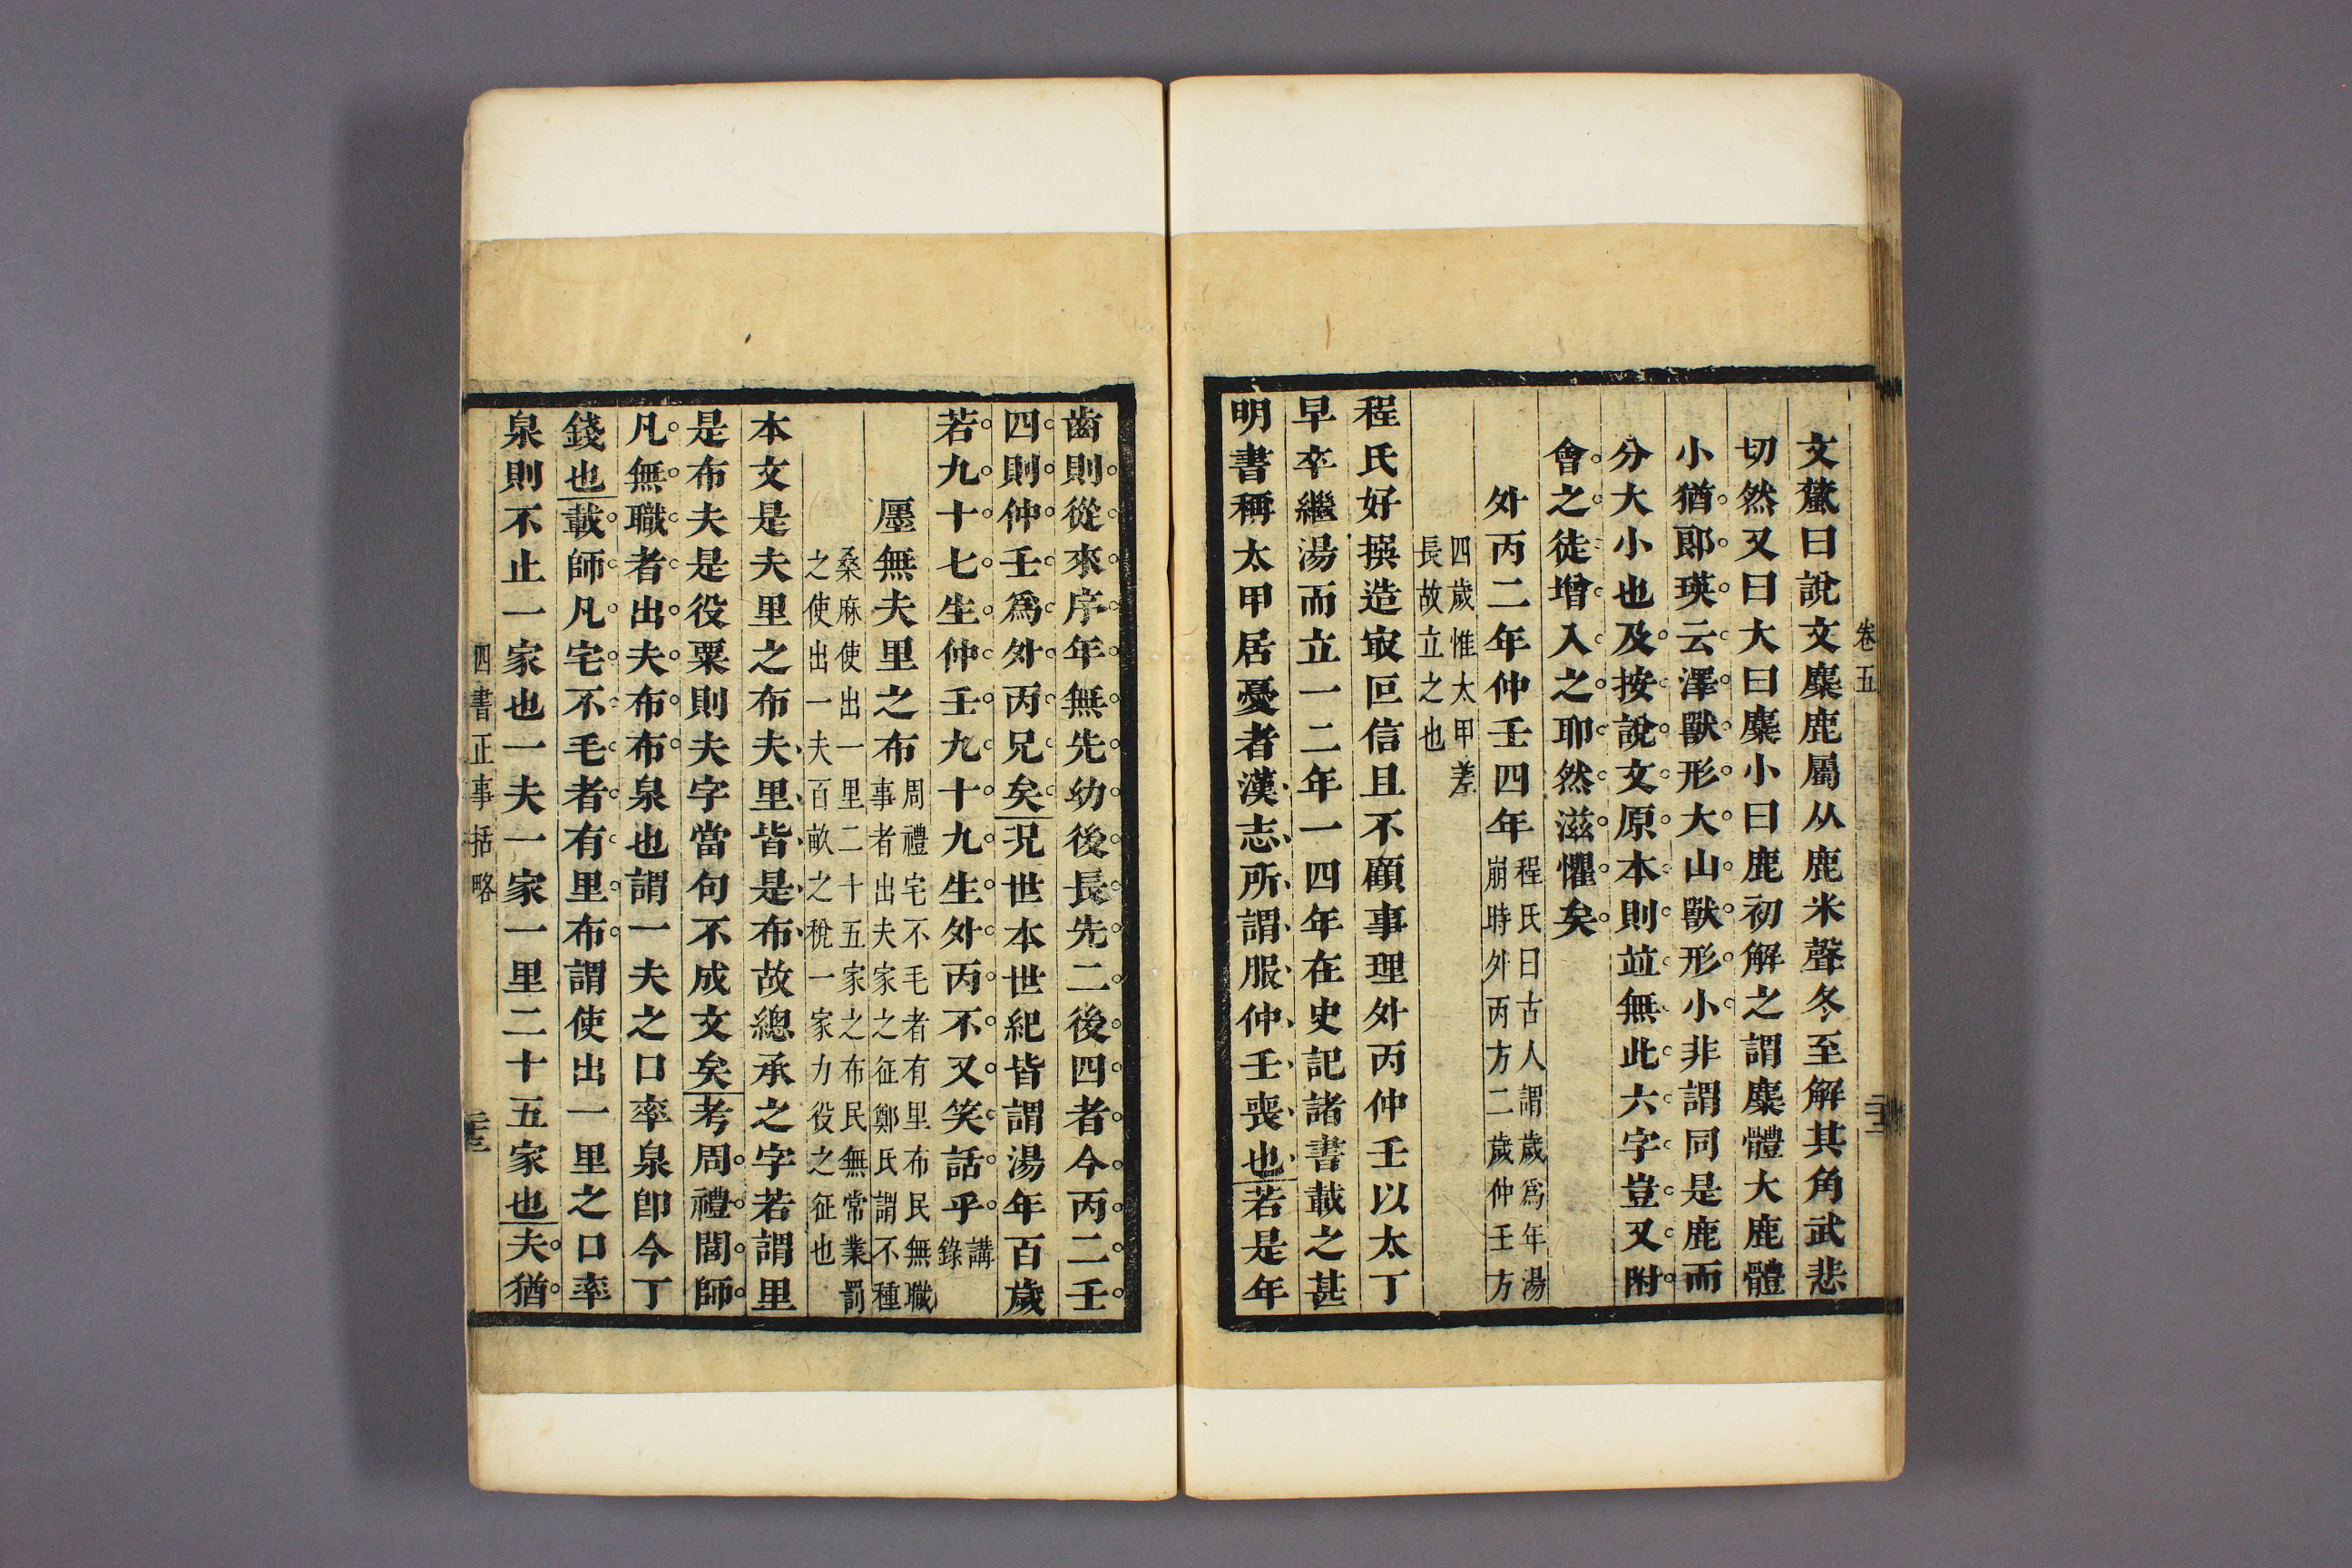 卷五
文鰵曰說文麋鹿屬从鹿米聲冬至解其角武悲
切然又曰大曰麋小曰鹿初解之謂麋體大鹿體
小猶郞瑛云澤獸形大山獸形小非謂同是鹿而
分大小也及按說文原本則竝無此六字豈又附
會之徒增入之耶然滋懼矣
外丙二年仲壬四年
程氏曰古人謂歲爲年湯
崩時外丙方二歲仲壬方
四歲惟太甲差
長故立之也
程氏好撰造㝡叵信且不顧事理外丙仲壬以太丁
早卒繼湯而立一二年一四年在史記諸書載之甚
明書稱太甲居憂者漢志所謂服仲壬喪也若是年
齒則從來序年無先幼後長先二後四者今丙二壬
四則仲壬爲外丙兄矣况世本世紀皆謂湯年百歲
若九十七生仲壬九十九生外丙不又笑話乎
講
錄
廛無夫里之布
周禮宅不毛者有里布民無職
事者出夫家之征鄭氏謂不種
桑麻使出一里二十五家之布民無常業罰
之使出一夫百畝之稅一家力役之征也
本文是夫里之布夫里皆是布故總承之字若謂里
是布夫是役粟則夫字當句不成文矣考周禮閭師
凡無職者出夫布布泉也謂一夫之口率泉卽今丁
錢也載師凡宅不毛者有里布謂使出一里之口率
泉則不止一家也一夫一家一里二十五家也夫猶
四書正事括略